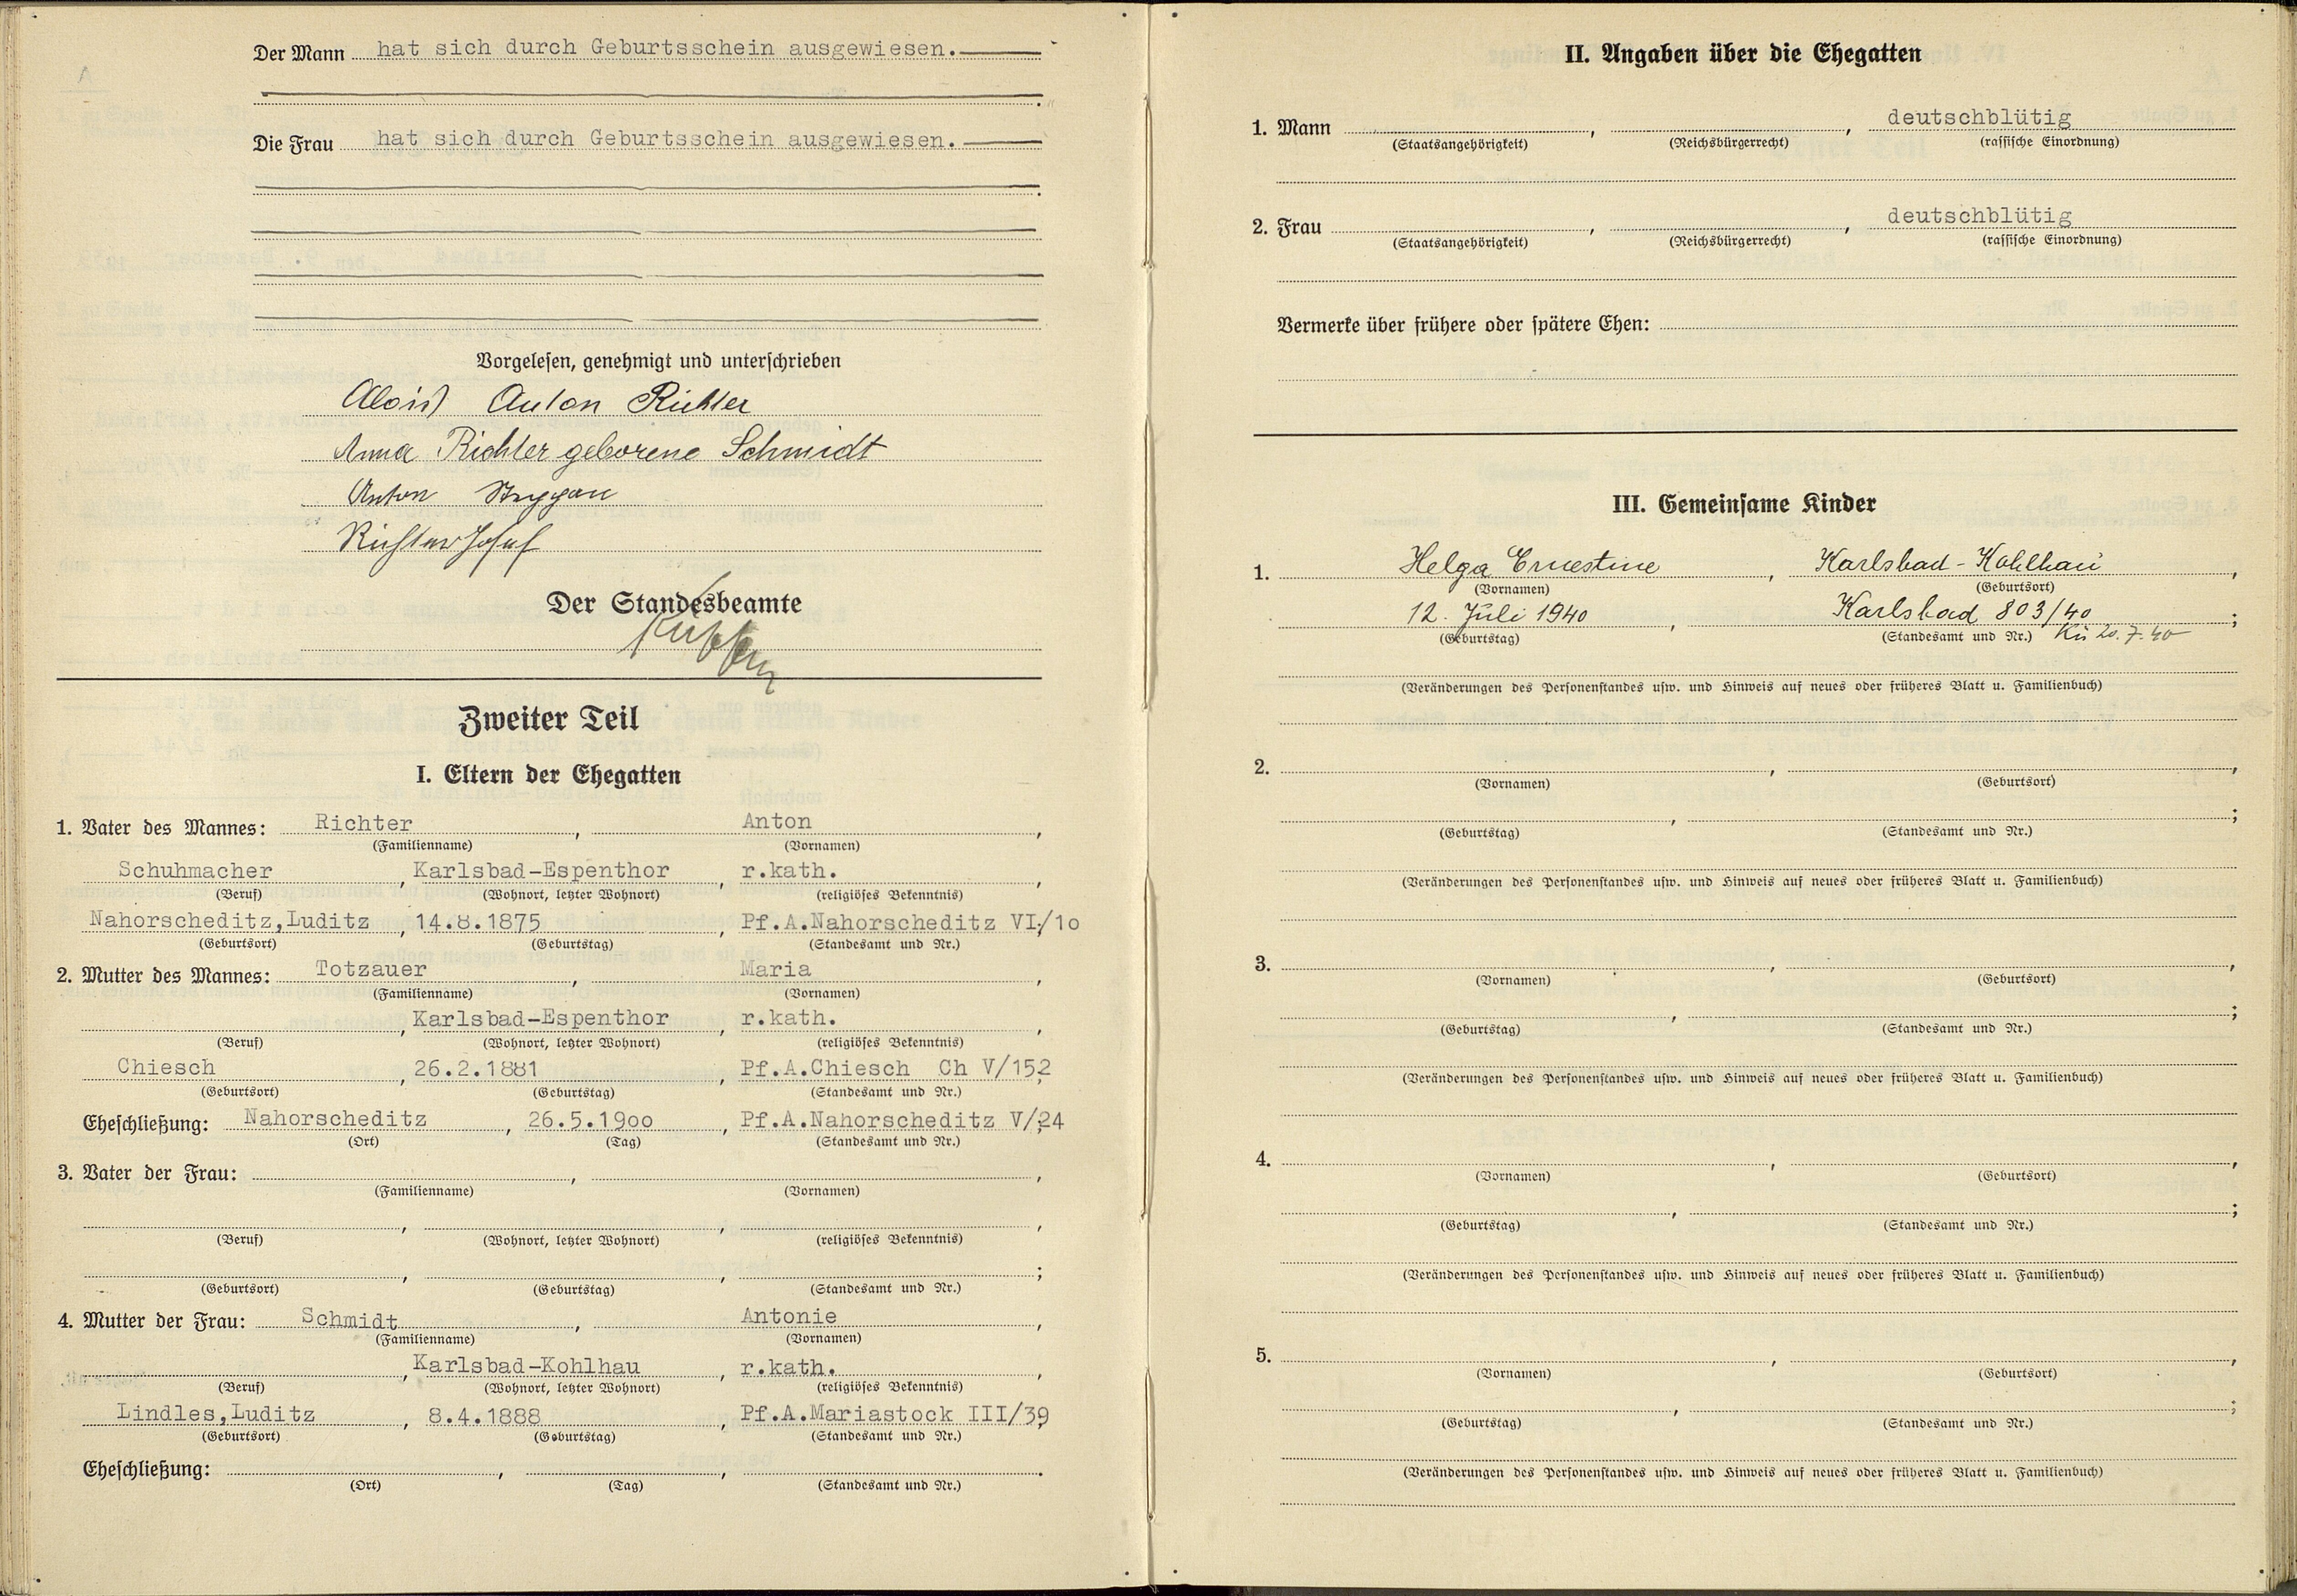 Der Mann hat sich durch Geburtsschein ausgewiesen.
Die Frau hat sich durch Geburtsschein ausgewiesen.
Vorgelesen, genehmigt und unterschrieben
Alois Anton Richter
Anna Richter geborene Schmidt
Anton
Richter Josef
Der Standesbeamte
Zweiter Teil
I. Eltern der Ehegatten
1. Vater des Mannes: Richter, Anton,
(Familienname) (Vornamen)
Schuhmacher, Karlsbad-Espenthor, r.kath.,
(Beruf) (Wohnort, letzter Wohnort) (religiöses Bekenntnis)
Nahorscheditz,Luditz, 14.8.1875, Pf.A.Nahorscheditz VI/10;
(Geburtsort) (Geburtstag) (Standesamt und Nr.)
2. Mutter des Mannes: Totzauer, Maria,
(Familienname) (Vornamen)
, Karlsbad-Espenthor, r.kath.,
(Beruf) (Wohnort, letzter Wohnort) (religiöses Bekenntnis)
Chiesch, 26.2.1881, Pf.A.Chiesch Ch V/152;
(Geburtsort) (Geburtstag) (Standesamt und Nr.)
Eheschließung: Nahorscheditz, 26.5.1900, Pf.A.Nahorscheditz V/24;
(Ort) (Tag) (Standesamt und Nr.)
3. Vater der Frau: , ,
(Familienname) (Vornamen)
, , ,
(Beruf) (Wohnort, letzter Wohnort) (religiöses Bekenntnis)
, , ;
(Geburtsort) (Geburtstag) (Standesamt und Nr.)
4. Mutter der Frau: Schmidt, Antonie,
(Familienname) (Vornamen)
, Karlsbad-Kohlhau, r.kath.,
(Beruf) (Wohnort, letzter Wohnort) (religiöses Bekenntnis)
Lindles,Luditz, 8.4.1888, Pf.A.Mariastock III/39;
(Geburtsort) (Geburtstag) (Standesamt und Nr.)
Eheschließung: , , .
(Ort) (Tag) (Standesamt und Nr.)
II. Angaben über die Ehegatten
1. Mann , , deutschblütig
(Staatsangehörigkeit) (Reichsbürgerrecht) (rassische Einordnung)
2. Frau , , deutschblütig
(Staatsangehörigkeit) (Reichsbürgerrecht) (rassische Einordnung)
Vermerke über frühere oder spätere Ehen:
III. Gemeinsame Kinder
1. Helga Ernestine, Karlsbad-Kohlhau,
(Vornamen) (Geburtsort)
12. Juli 1940, Karlsbad 803/40;
(Geburtstag) (Standesamt und Nr.) Kü 20.7.40
(Veränderungen des Personenstandes usw. und Hinweis auf neues oder früheres Blatt u. Familienbuch)
2. , ,
(Vornamen) (Geburtsort)
, ;
(Geburtstag) (Standesamt und Nr.)
(Veränderungen des Personenstandes usw. und Hinweis auf neues oder früheres Blatt u. Familienbuch)
3. , ,
(Vornamen) (Geburtsort)
, ;
(Geburtstag) (Standesamt und Nr.)
(Veränderungen des Personenstandes usw. und Hinweis auf neues oder früheres Blatt u. Familienbuch)
4. , ,
(Vornamen) (Geburtsort)
, ;
(Geburtstag) (Standesamt und Nr.)
(Veränderungen des Personenstandes usw. und Hinweis auf neues oder früheres Blatt u. Familienbuch)
5. , ,
(Vornamen) (Geburtsort)
, ;
(Geburtstag) (Standesamt und Nr.)
(Veränderungen des Personenstandes usw. und Hinweis auf neues oder früheres Blatt u. Familienbuch)